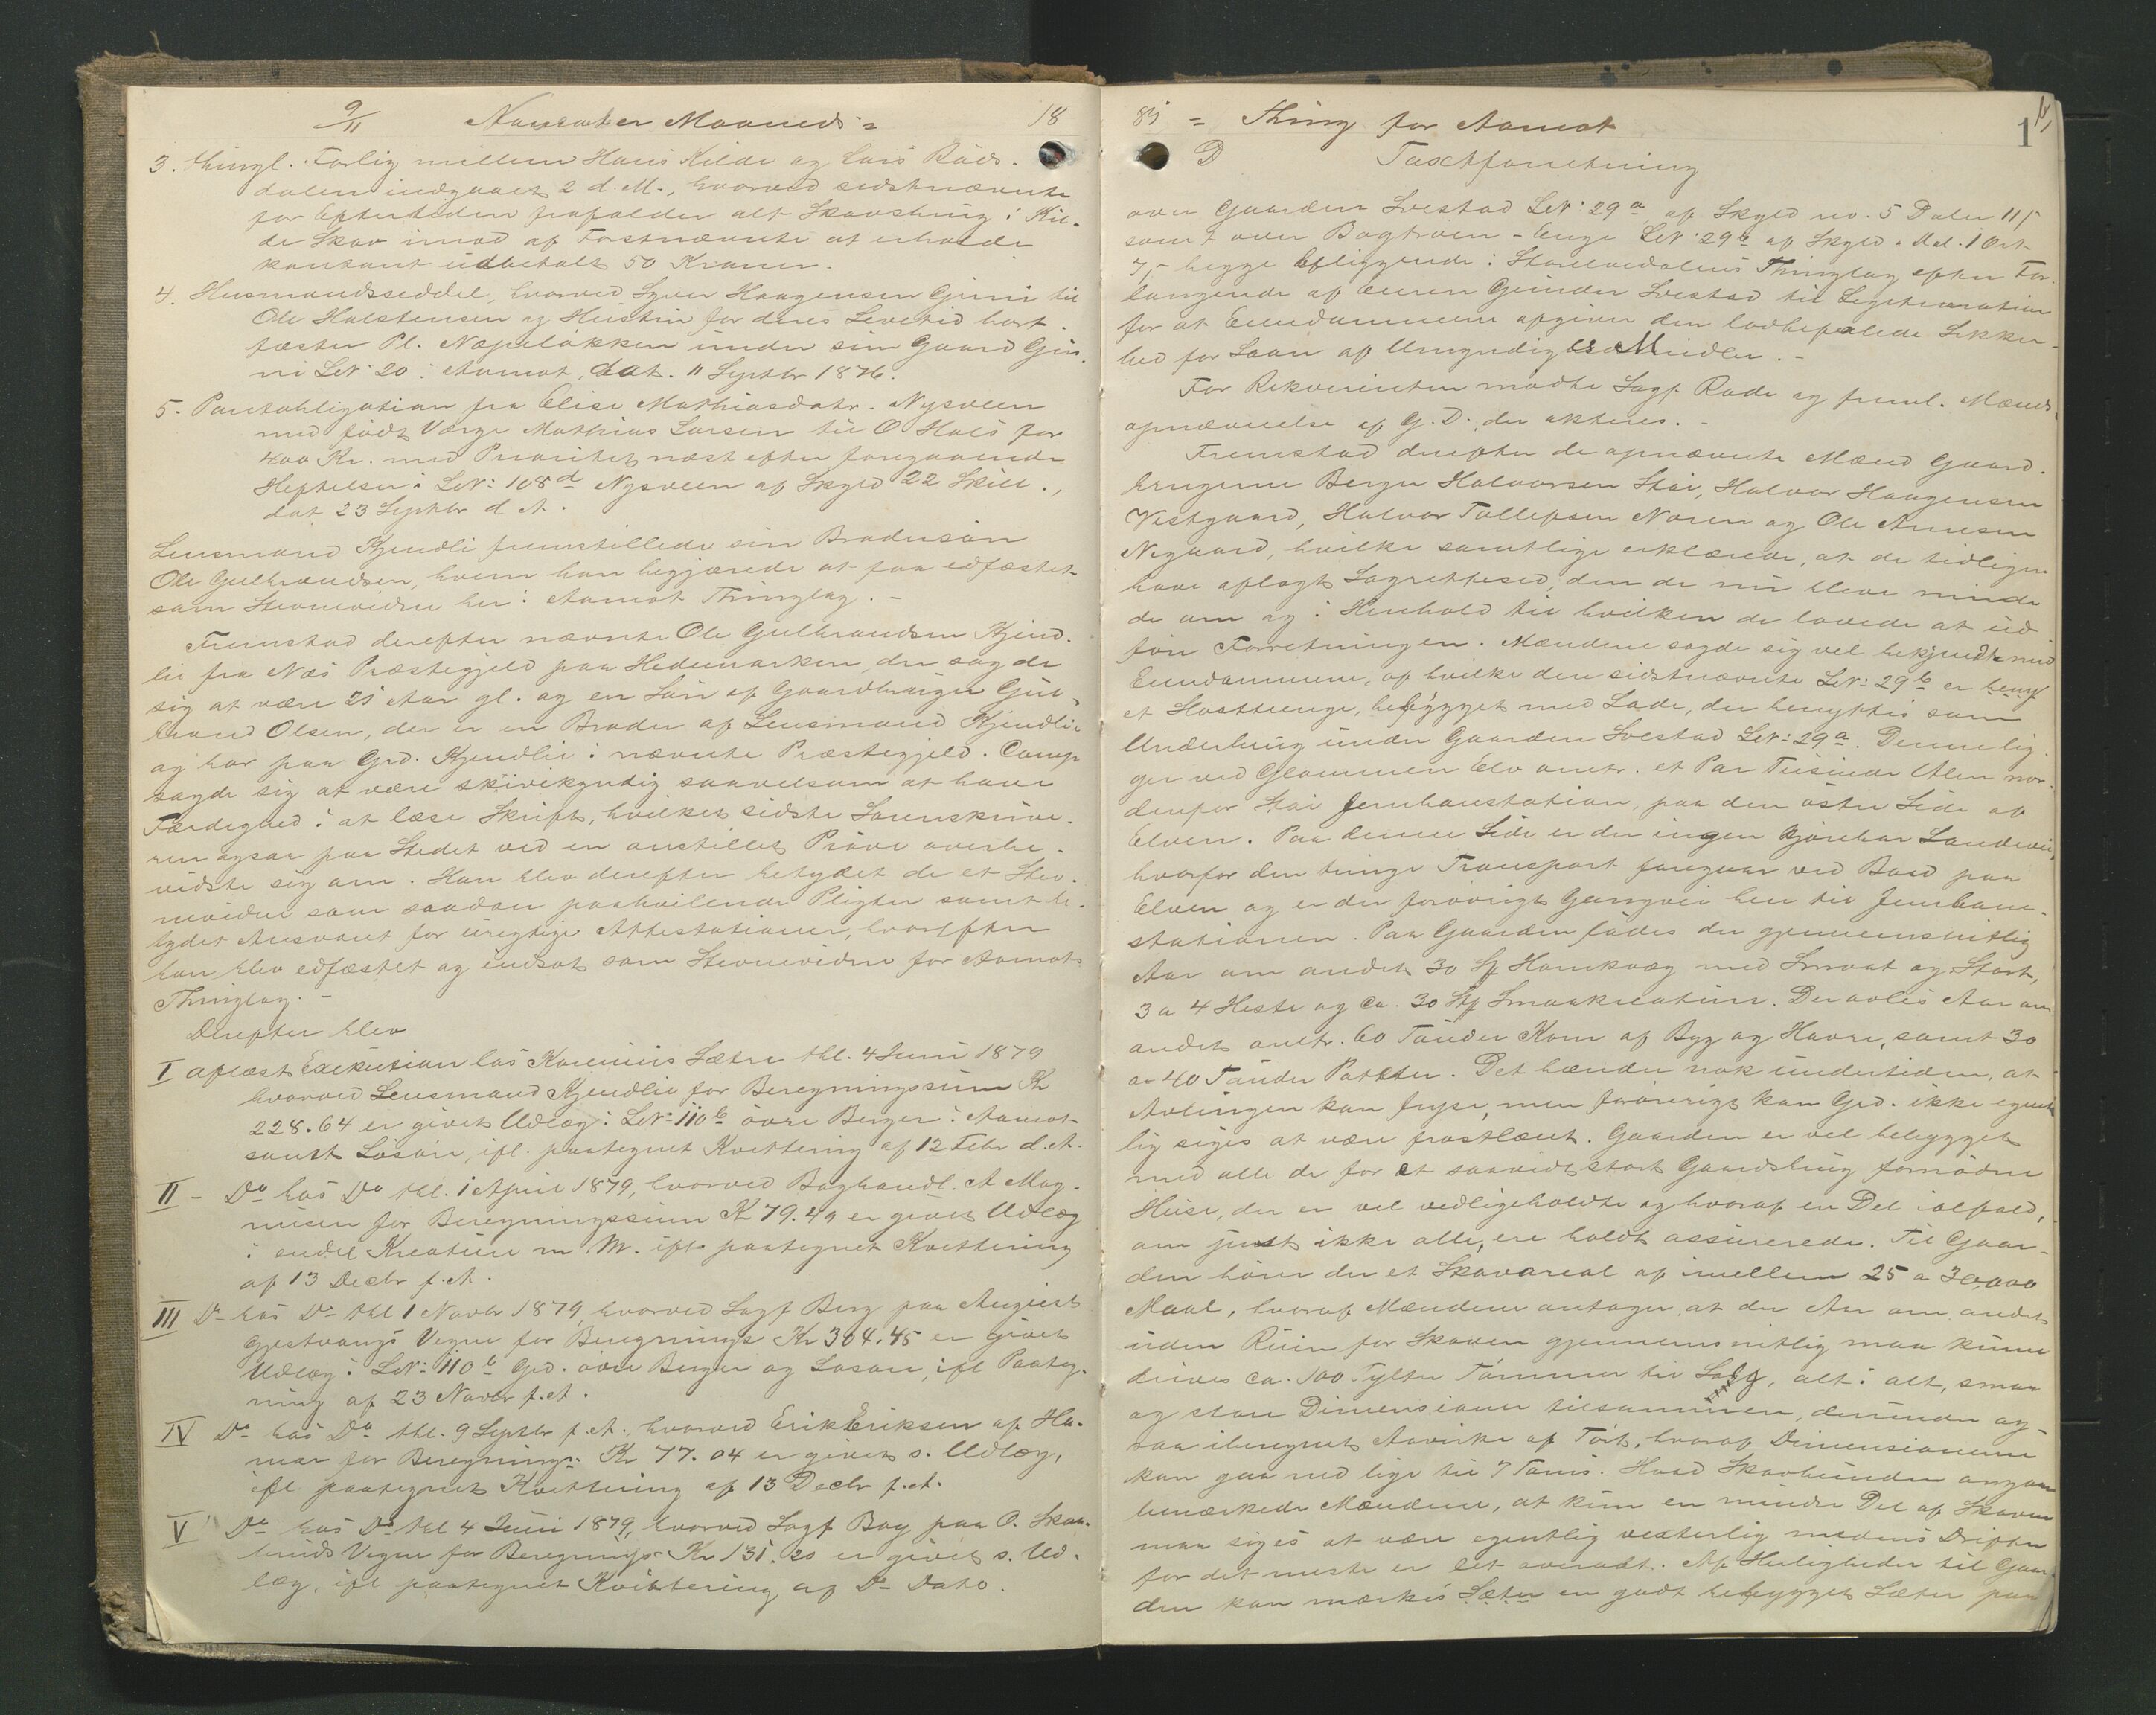 9/11 November Maaneds = 18
3. Thingl. Forlig mellem Hans Kilde og Lars Röds-
dalen indgaaet 2 d. M., hvorved sidstnævnte
for Eftertiden frafalder alt Skovbrug i Kil-
de Skov imod af Førstnævnte at erholde
kontant udbetalt 50 Kroner.
4. Husmandsseddel, hvorved Syver Haagensen Grini til
Ole Halstensen og Hustru for deres Levetid bort-
fæster Pl. Næpeløkken under sin Gaard Gri-
ni LN: 20 i Aamot, dat. 11 Septbr 1876.
5. Pantobligation fra Elise Mathiasdatr. Nysveen
med født Værge Mathias Larsen til O Hals for
400 Kr. med Prioritet næst efter foregaaende
Heftelser i LN: 108d Nysveen af Skyld 22 Skill.,
dat 23 Septbr d A.
Lensmand Kjendli fremstillede sin Brodersøn
Ole Gulbrandsen, hvem han begjærede at faa edfæstet
som Stevnevidne her i Aamot Thinglag. -
Fremstod derefter nævnte Ole Gulbrandsen Kjend-
li fra Næs Præstegjeld paa Hedemarken, der sagde
sig at være 21 Aar gl. og en Søn af Gaardbruger Gul-
brand Olsen, der er en Broder af Lensmand Kjendlie
og bor paa Grd. Kjendlie i nævnte Præstegjeld. Comp
sagde sig at være skrivekyndig saavelsom at have
Færdighed i at læse Skrift, hvilket sidste Sorenskrive-
ren ogsaa paa Stedet ved en anstillet Prøve overbe-
viste sig om. Han blev derefter betydet de et Stev-
nevidne som saadan paahvilende Pligter samt be-
tydet Ansvaret for urigtige Attestationer, hvorefter
han blev edfæstet og indsat som Stevnevidne for Aamots
Thinglag. -
Derefter blev
I aflæst Exekution hos Karenius Sætre thl. 4 Juni 1879
hvorved Lensmand Kjendlie for Beregningssum Kr
228.64 er givet Udlæg i LN: 110b øvre Berger i Aamot
samt Løsøre, ifl. paategnet Kvittering af 12 Febr d.A.
II - Do hos Do thl. 1 April 1879, hvorved Boghandl. A Mag-
nusen for Beregningssum Kr 79.49 er givet Udlæg
i endel Kreature m. M. ifl. paategnet Kvittering
af 13 Decbr f.A.
III Do hos Do thl 1 Novbr 1879, hvorved Sagf Berg paa August
Gjestvangs Vegne for Beregnings Kr 304.45 er givet
Udlæg i LN: 110b Grd. øvre Berger og Løsøre, ifl Paateg-
ning af 23 Novbr f.A.
IV Do hos Do thl. 9 Septbr f.A., hvorved Erik Eriksen af Ha-
mar for Beregnings. Kr 77.04 er givet s. Udlæg,
ifl paategnet Kvittering af 13 Decbr f.A.
V Do hos Do thl 4 Juni 1879, hvorved Sagf Boy paa O. Skaa-
bruds Vegne for Beregnings Kr 131.20 er givet s. Ud-
læg, ifl paategnet Kvittering af Do Dato.
= Thing for Aamot
1
D Taxtforretning
over Gaarden Svestad LN: 29a af Skyld no. 5 Daler 11 ß
samt over Bagtroen-Enge LN: 29b af Skyld 1 Ort
7 ß begge beliggende i Storelvedalens Thinglag efter For-
langende af Einer Gunder Svestad til Legitimation
for at Eiendommene afgiver den lovbefalede Sikker-
hed for Laan af Umyndiges Midler. -
For Rekvirenten mødte Sagf. Rode og freml. Mænds-
opnævnelse af G. D. der aktéres. -
Fremstod derefter de opnævnte Mænd Gaard-
brugerne Berger Halvorsen Stai, Halvor Haagensen
Vestgaard, Halvor Tollefsen Noren og Ole Arnesen
Negaard, hvilke samtlige erklærede, at de tidligere
have aflagt Lagrettesed, den de nu bleve minde-
de om og i Henhold til hvilken de lovede at ud-
føre Forretningen. Mændene sagde sig vel bekjendt med
Eiendommene, af hvilke den sidstnævnte LN: 29b er
et Høstteenge, bebygget med Lade, der benyttes som
Underbrug under Gaarden Svestad LN: 29a. Denne lig-
ger ved Glommen Elv omtr. et Par Tusinde Alen nor-
denfor Stai Jernbanstation, paa den øster Side af
Elven. Paa denne Side er der ingen kjørebar Landevei,
hvorfor den tunge Transport foregaar ved Baad paa
Elven og er der forøvrigt Gangvei hen til Jernbane-
stationen. Paa Gaarden födes der gjennemsnitlig
Aar om andet 30 St Hornkvæg med Smaat og Stort,
3 a 4 Heste og ca. 30 St Smaakreature. Der avles Aar om
andet omtr. 60 Tønder Korn af Byg og Havre, samt 30
a 40 Tønder Poteter. Det hænder nok undertiden, at
Avlingen kan fryse, men forøvrigt kan Grd. ikke egent-
lig siges at være frostlændt. Gaarden er vel bebygget
med alle de for et saavidt stort Gaardsbrug fornødne
Huse, der er vel vedligeholdte og hvoraf en Del ialfald,
om just ikke alle, ere holdt assurerede. Til Gaar-
den hører der et Skovareal af imellem 25 a 30,000
Maal, hvoraf Mændene antager, at der Aar om andet
uden Ruin for Skoven gjennemsnitlig maa kunne
drives ca. 100 Tylfter Tømmer til Salg, alt i alt, smaa
og store Dimensioner tilsammen, derunder og-
saa iberegnet Aavirke af Tørt, hvoraf Dimensionerne
kan gaa ned lige til 7 Toms. Hvad Skovbunden angaar
bemærkede Mændene, at kun en mindre Del af Skoven
maa siges at være egentlig vexterlig medens Driften
for det meste er let overalt. Af Herligheder til Gaar-
den kan mærkes Sæter en godt bebygget Sæter paa